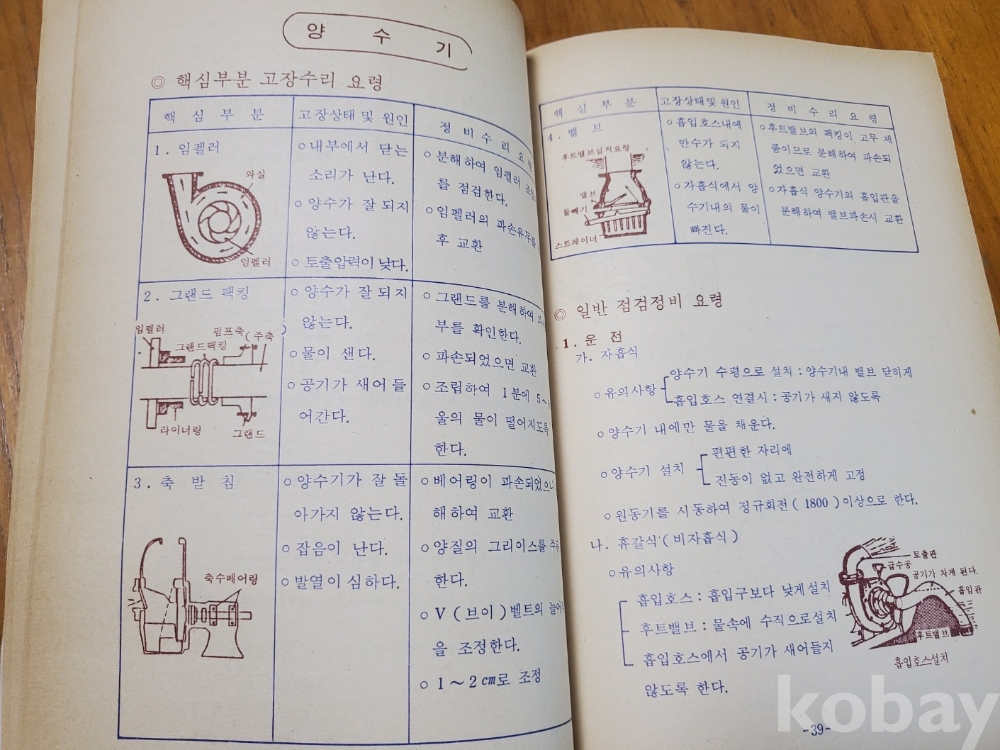 양 수 기
◎ 핵심부분 고장수리 요령
핵 심 부 분
고장상태 및 원인
정 비 수 리 요 령
1. 임펠러
와실
임펠러
○ 내부에서 닫는
소리가 난다.
○ 양수가 잘 되지
않는다.
○ 토출압력이 낮다.
○ 분해하여 임펠러
를 점검한다.
○ 임펠러의 파손유무를
후 교환
2. 그랜드 팩킹
임펠러
펌프축
(주축)
그랜드팩킹
라이너링
그랜드
○ 양수가 잘 되지
않는다.
○ 물이 샌다.
○ 공기가 새어 들
어간다.
○ 그랜드를 분해하여
부를 확인한다.
○ 파손되었으면 교환
○ 조립하여 1분에 5~
울의 물이 떨어지도록
한다.
3. 축 받 침
축수베어링
○ 양수기가 잘 돌
아가지 않는다.
○ 잡음이 난다.
○ 발열이 심하다.
○ 베어링이 파손되었으
해하여 교환
○ 양질의 그리이스를 주
한다.
○ V(브이)벨트의 늘어
을 조정한다.
○ 1~2cm로 조정
핵 심 부 분
고장상태및 원인
정 비 수 리 요 령
4. 밸 브
후트밸브설치요령
밸브
물빼기
스트레이너
○ 흡입호스내에
만수가 되지
않는다.
○ 자흡식에서 양
수기내의 물이
빠진다.
○ 후트밸브의 팩킹이 고무 제
품이므로 분해하여 파손되
었으면 교환
○ 자흡식 양수기의 흡입관을
분해하여 밸브파손시 교환
◎ 일반 점검정비 요령
1. 운 전
가. 자흡식
○ 유의사항
양수기 수평으로 설치 : 양수기내 밸브 닫히게
흡입호스 연결시 : 공기가 새지 않도록
○ 양수기 내에만 물을 채운다.
○ 양수기 설치
편편한 자리에
진동이 없고 완전하게 고정
○ 원동기를 시동하여 정규회전(1800)이상으로 한다.
나. 휴갈식(비자흡식)
○ 유의사항
흡입호스 : 흡입구보다 낮게설치
후트밸브 : 물속에 수직으로설치
흡입호스에서 공기가 새어들지
않도록 한다.
토출관
급수공
공기가 차게 된다.
흡입관
후트밸브
흡입호스설치
-39-
kobay